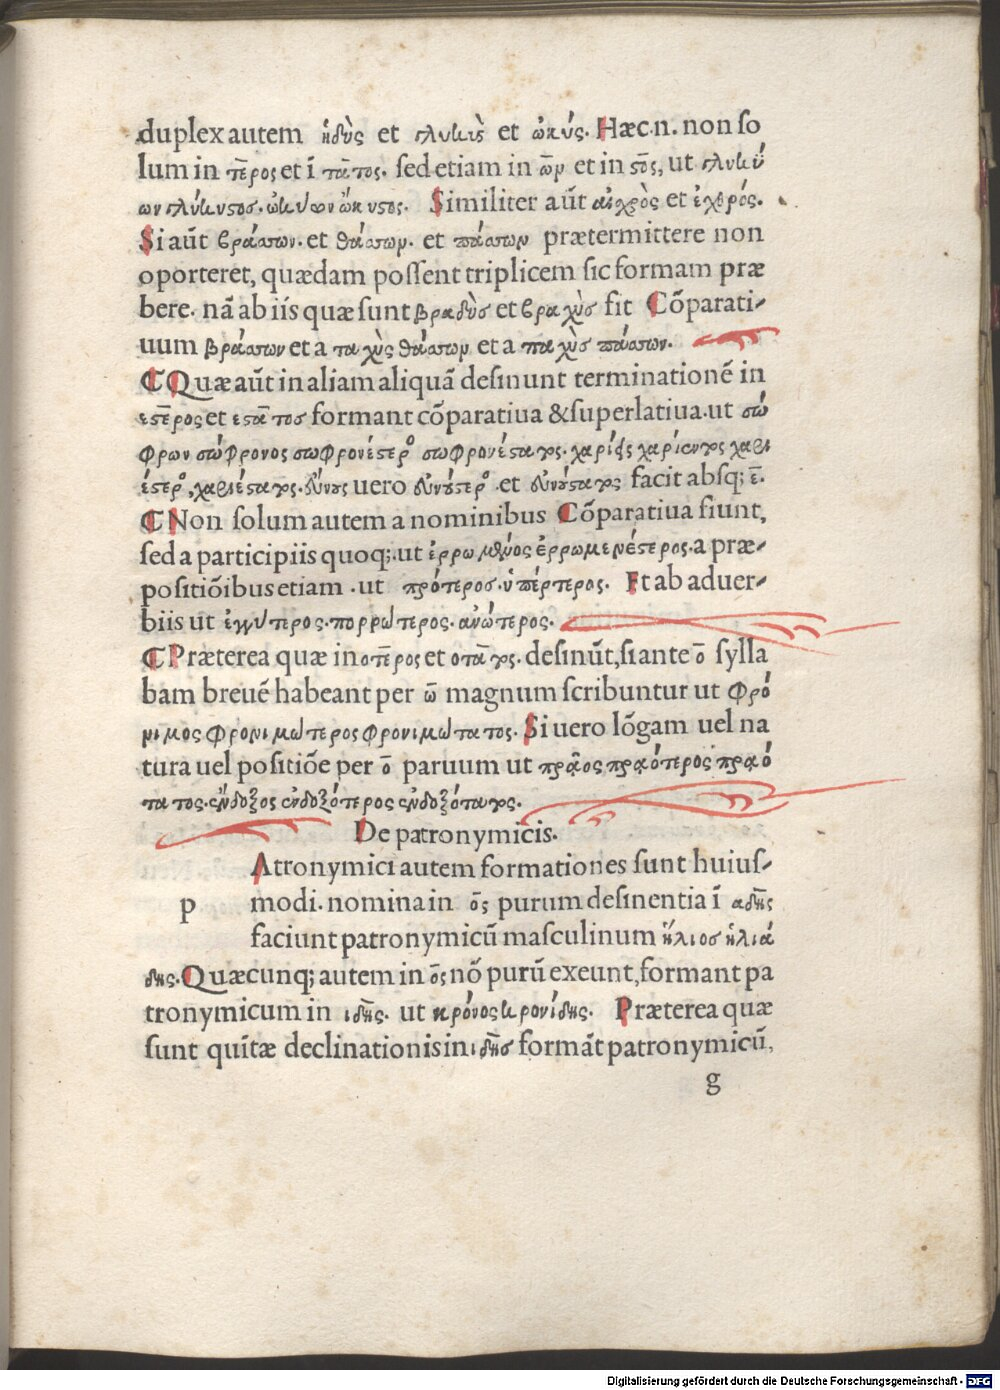 duplex autem ἡδὺς et γλυκὺς et ὠκύς. Hæc.n. non so
lum in τε̄ρος et ī τᾱτος. sed etiam in ω̄ν et in στο̄ς, ut γλυκύ
ων γλύκυστος. ὠκύων ὤκυστος. Similiter aūt αἰχρὸς et ἐχθρός.
Si aūt βράσσων. et θάσσων. et πάσσων prætermittere non
oporteret, quædam possent triplicem sic formam præ
bere. nā ab iis quæ sunt βραδὺς et βραχὺς fit Cōparati-
uum βράσσων et a ταχὺς θάσσων et a παχὺς πάσσων.
⁋ Quæ aūt in aliam aliquā desinunt terminationē in
εστε̄ρος et εστᾱτος formant cōparatiua & superlatiua. ut σώ
φρων σώφρονος σωφρονέστερος σωφρονέστατος. χαρίεις χαρίεντος χαρι
έστερος, χαριέστατος. εὔνους uero εὐνούστερος et εὐνούστατος facit absq; ε̄.
⁋ Non solum autem a nominibus Cōparatiua fiunt,
sed a participiis quoq;. ut ἐρρωμένος ἐρρωμενέστερος. a præ-
positiōibus etiam . ut πρότερος. ὑπέρτερος. Et ab aduer-
biis ut ἐγγύτερος. πορρώτερος. ἀνώτερος.
⁋ Præterea quæ in οτε̄ρος et οτᾱτος. desinūt, si ante ο̄ sylla
bam breuē habeant per ω̄ magnum scribuntur ut φρό
νιμος φρονιμώτερος φρονιμώτατος. Si uero lōgam uel na
tura uel positiōe per ο̄ paruum ut πρᾶος πραότερος πραό
τατος. ἔνδοξος ἐνδοξότερος ἐνδοξότατος.
De patronymicis.
Atronymici autem formationes sunt huius-
p modi. nomina in ο̄ς purum desinentia ī αδη̄ς
faciunt patronymicū masculinum ἥλιος ἡλιά
δης. Quæcunq; autem in ο̄ς nō purū exeunt, formant pa
tronymicum in ιδη̄ς. ut κρόνος κρονίδης. Præterea quæ
sunt quītæ declinationis in ιδη̄ς formāt patronymicū,
g
Digitalisierung gefördert durch die Deutsche Forschungsgemeinschaft - DFG